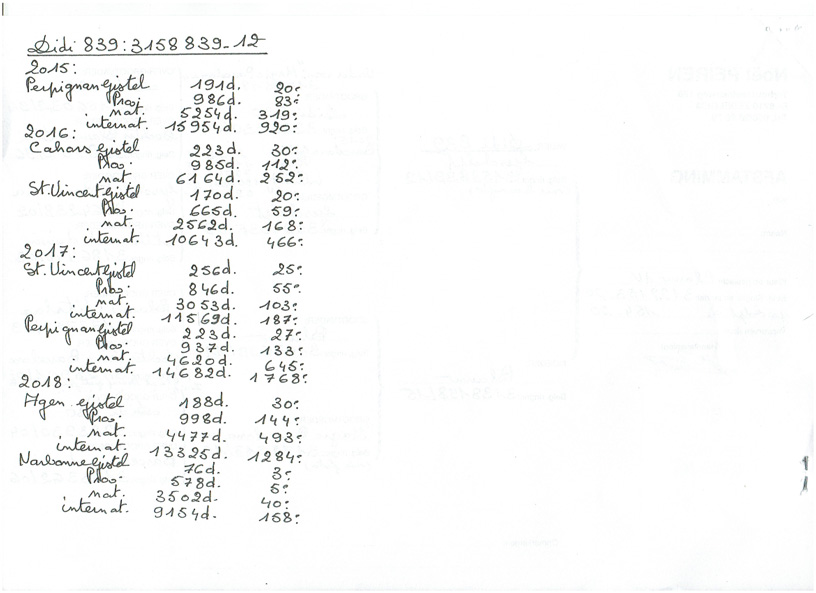 Didi 839: 3158839-12
2015:
Perpignan Gistel 191d. 20:
Prov. 986d. 83:
nat. 5254d. 319:
internat. 15954d. 920:
2016:
Cahors Gistel 223d. 30:
Prov. 985d. 112:
nat. 6164d. 252:
St. Vincent Gistel 170d. 20:
Prov. 665d. 59:
nat. 2562d. 168:
internat. 10643d. 466:
2017:
St. Vincent Gistel 256d. 25:
Prov. 846d. 55:
nat. 3053d. 103:
internat. 11569d. 187:
Perpignan Gistel 223d. 27:
Prov. 937d. 133:
nat. 4620d. 645:
internat. 14682d. 1768:
2018:
Agen Gistel 188d. 30:
Prov. 998d. 144:
nat. 4477d. 493:
internat. 13325d. 1284:
Narbonne Gistel 76d. 3:
Prov. 578d. 5:
nat. 3502d. 40:
internat. 9154d. 158: